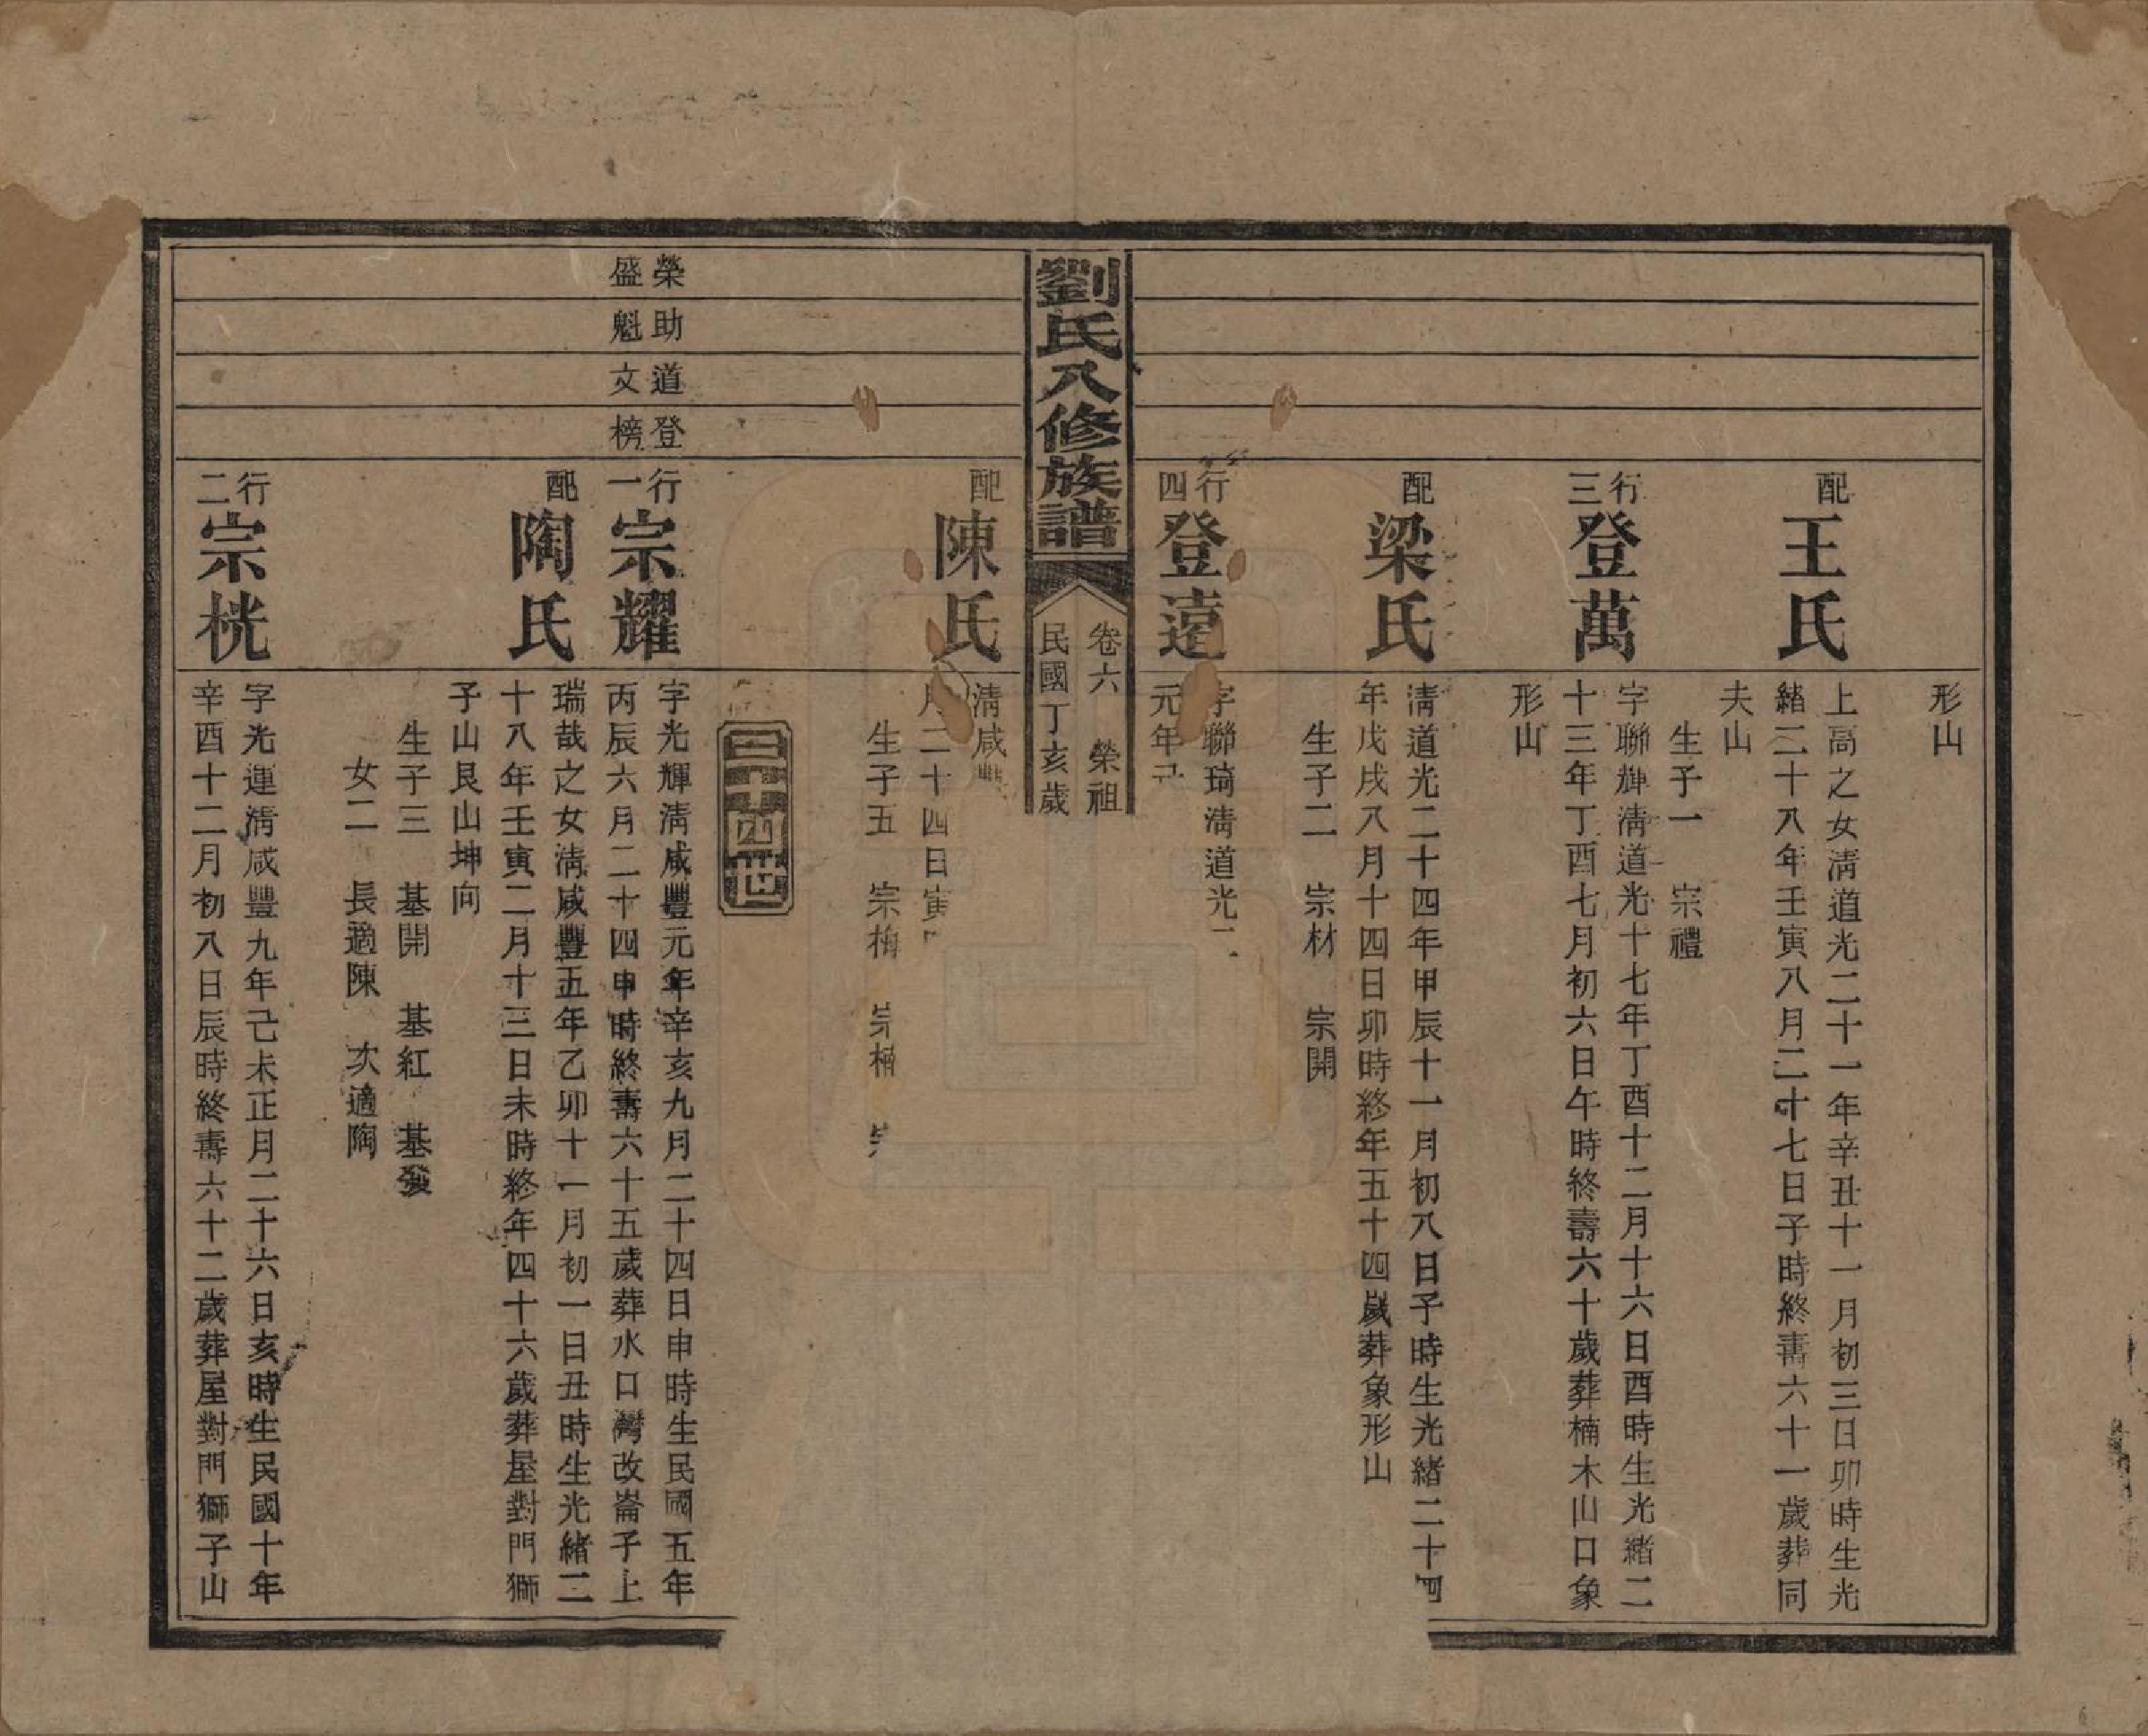 形山
配王氏
上高之女淸道光二十一年辛丑十一月初三日卯時生光
緒二十八年壬寅八月二十七日子時終壽六十一歲葬同
夫山
生子一　宗禮
行三登萬
字聯輝淸道光十七年丁酉十二月十六日酉時生光緒二
十三年丁酉七月初六日午時終壽六十歲葬楠木山口象
形山
配梁氏
淸道光二十四年甲辰十一月初八日子時生光緒二十四
年戊戌八月十四日卯時終年五十四歲葬象形山
生子二　宗材　宗開
行四登遠
字聯琦淸道光二
元年
劉氏八修族譜
卷六　榮祖
民國丁亥歲
配陳氏
淸咸
月二十四日寅
生子五　宗梅　宗楠　宗
三十四世
榮助道登
盛魁文榜
行一宗耀
字光輝淸咸豐元年辛亥九月二十四日申時生民國五年
丙辰六月二十四申時終壽六十五歲葬水口灣改崙子上
配陶氏
瑞哉之女淸咸豐五年乙卯十一月初一日丑時生光緒二
十八年壬寅二月十三日未時終年四十六歲葬屋對門獅
子山艮山坤向
生子三　基開　基紅　基發
女二　長適陳　次適陶
行二宗桄
字光運淸咸豐九年己未正月二十六日亥時生民國十年
辛酉十二月初八日辰時終壽六十二歲葬屋對門獅子山